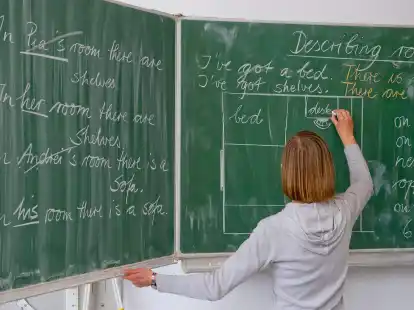 In Pia's room there are
shelves.
In her room there are
shelves.
In Andrei's room there is a
sofa.
In his room there is a sofa.
Describing
I've got a bed. There is
I've got shelves. There are
bed
desk
on
on